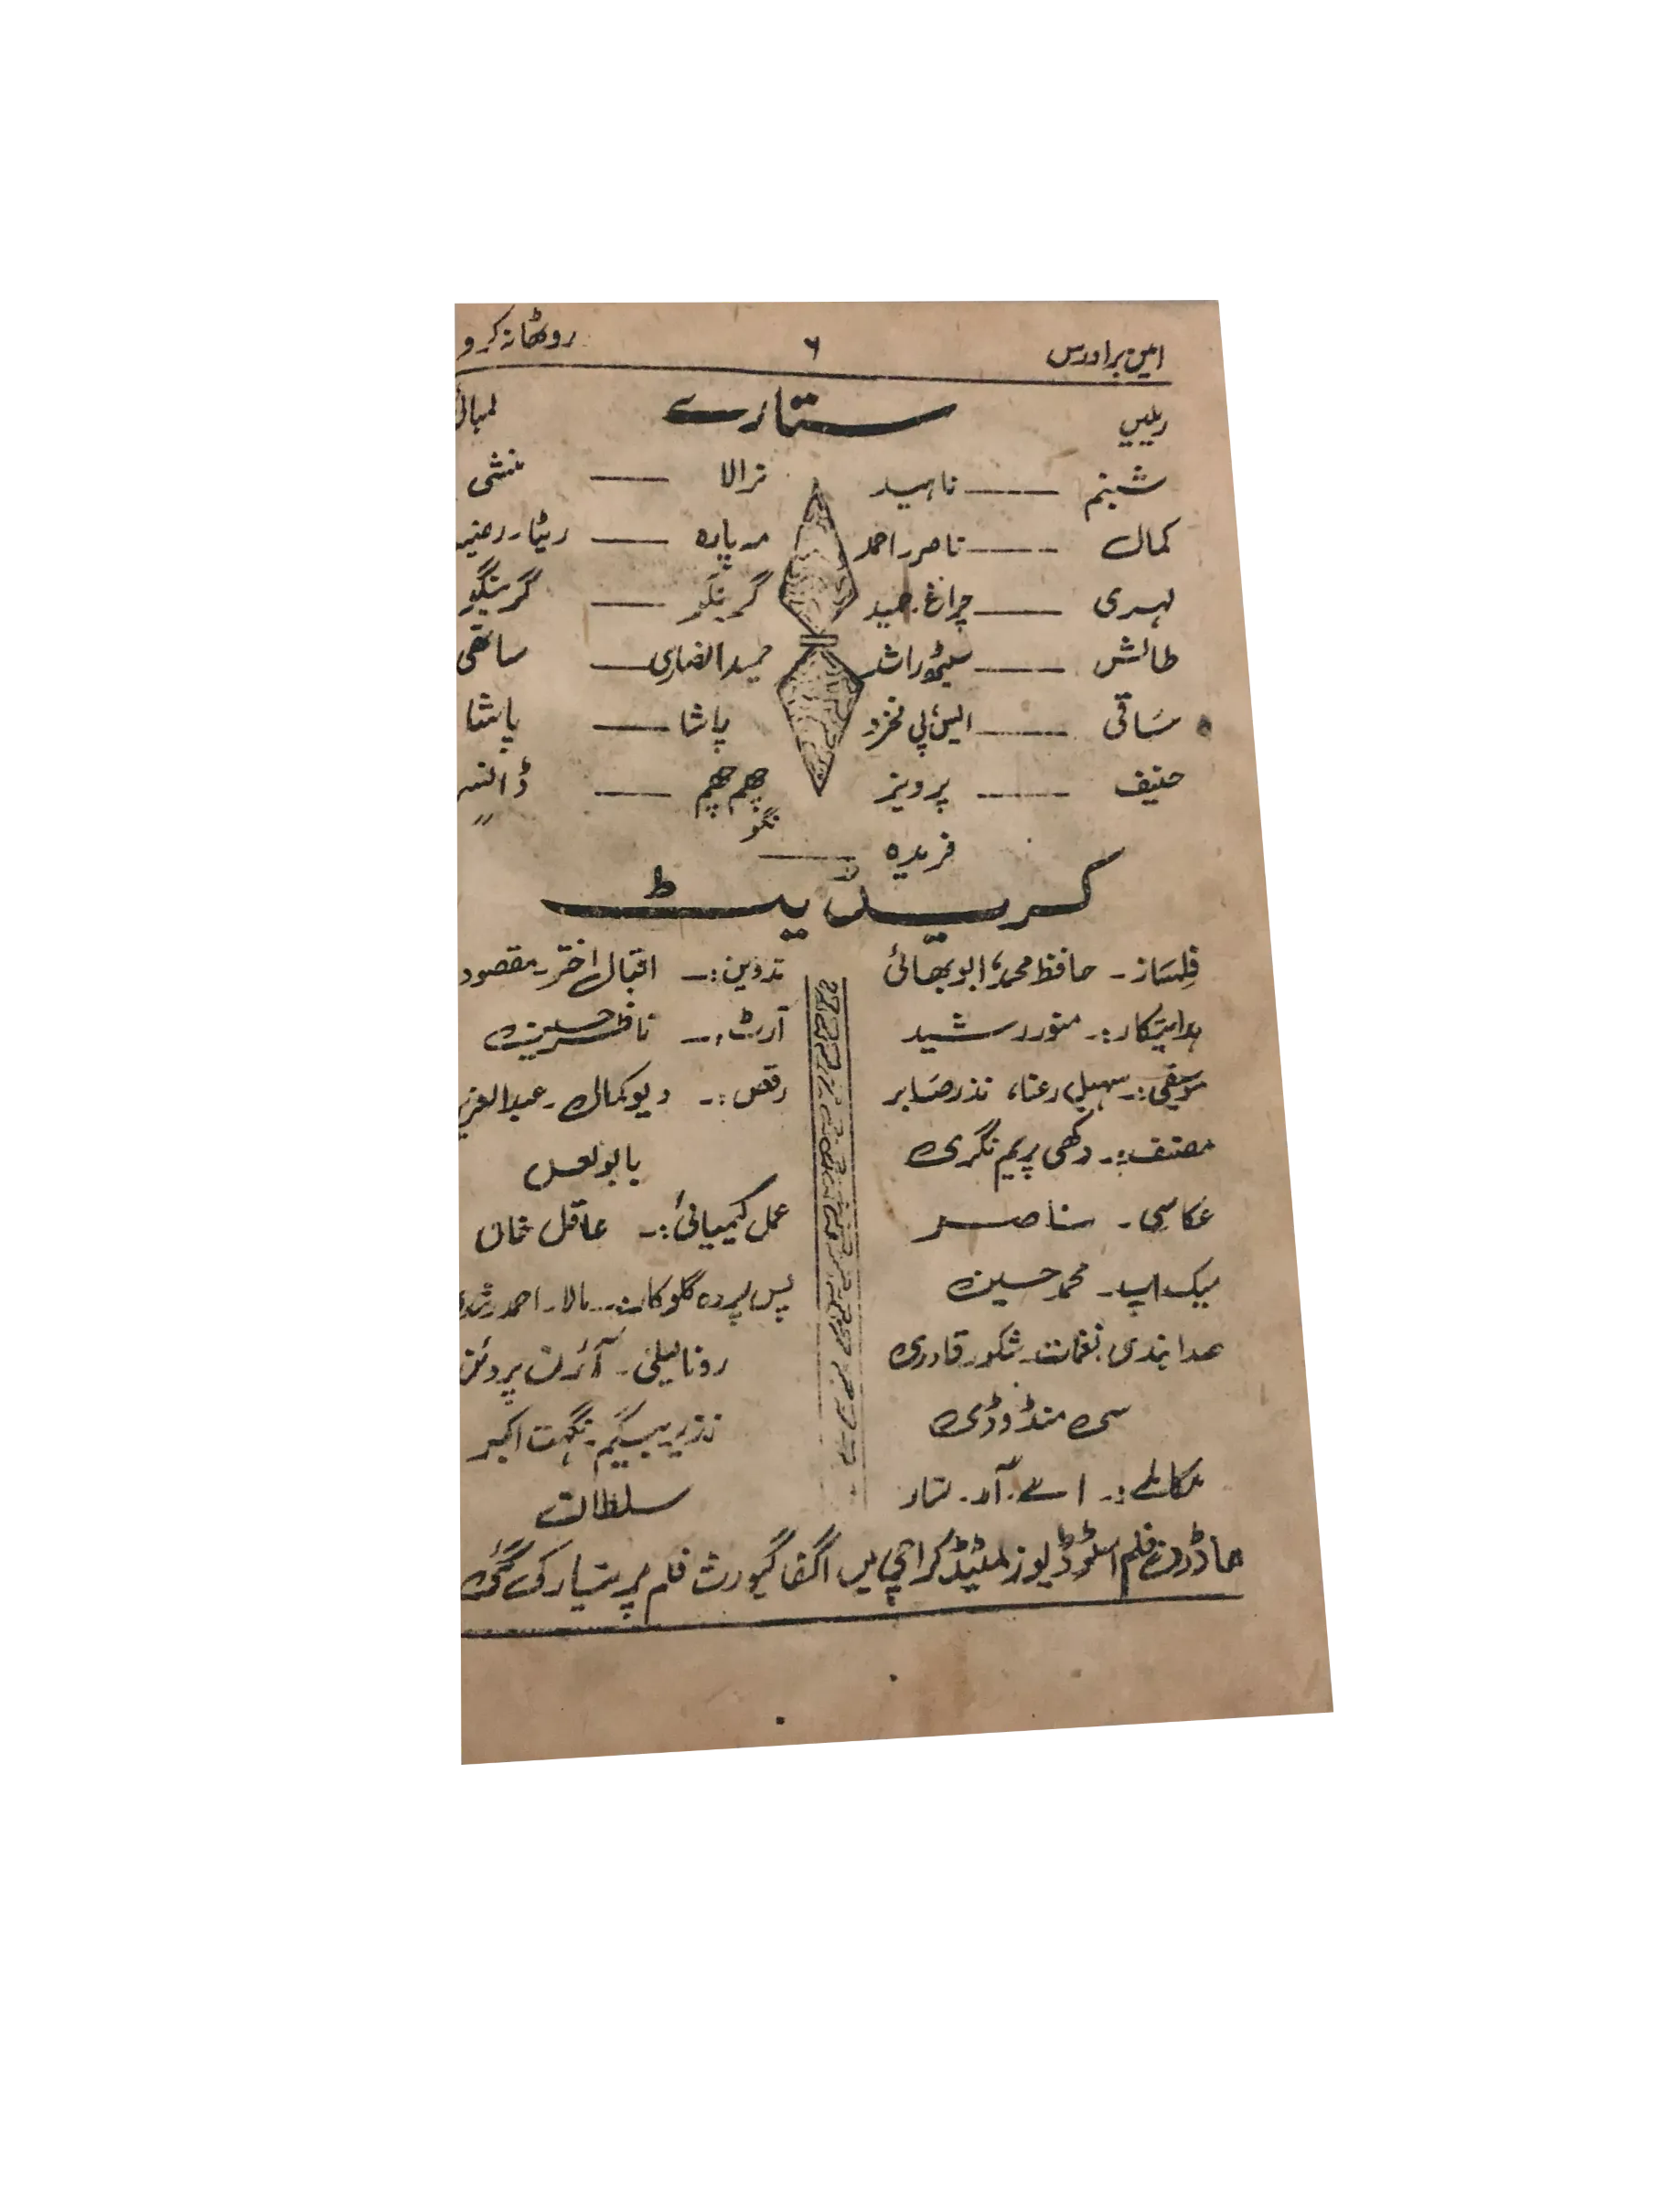 امین برادرس ۶ روٹھا نہ کرو
ریلیں ستارے لمبائی
شبنم ــــ ناہید نرالا ــــ منشی
کمال ــــ ناصر، احمد مہ پارہ ــــ ریٹا۔ رضیہ
لہری ــــ چراغ۔ حمید گرینگو ــــ گرینگو
طالش ــــ سیٹھ راشد حمید انصاری ــــ ساتھی
ساقی ــــ ایس، پی فخرو پاشا ــــ پاشا
حنیف ــــ پرویز چھم چھم ــــ ڈانسر
نگو ــــ "
فریدہ ــــ
کریڈیٹ
فلمساز۔ حافظ محمد، ابو بھائی تدوین:۔ اقبال اختر۔ مقصود
ہدایتکار:۔ منور رشید آرٹ:۔ ناظر حسین
موسیقی:۔ سہیل رعنا، نذر صابر رقص:۔ دیو کمال۔ عبدالعزیز
مصنف:۔ دکھی پریم نگری بابو لعل
عکاسی۔ ناصر عمل کیمیائی:۔ عاقل خان
میک اپ۔ محمد حسین پس پردہ گلوکار۔ مالا۔ احمد رشدی
صدا بندی نغمات۔ شکور قادری رونا لیلیٰ۔ آئرن پروئن
سی منڈوڈی نذیر بیگم۔ نگہت اکبر
مکالمے:۔ اے۔ آر۔ سلطان
ماڈرن فلم اسٹوڈیوز لمیٹڈ کراچی میں اگفا گیورٹ فلم پر تیار کی گئی